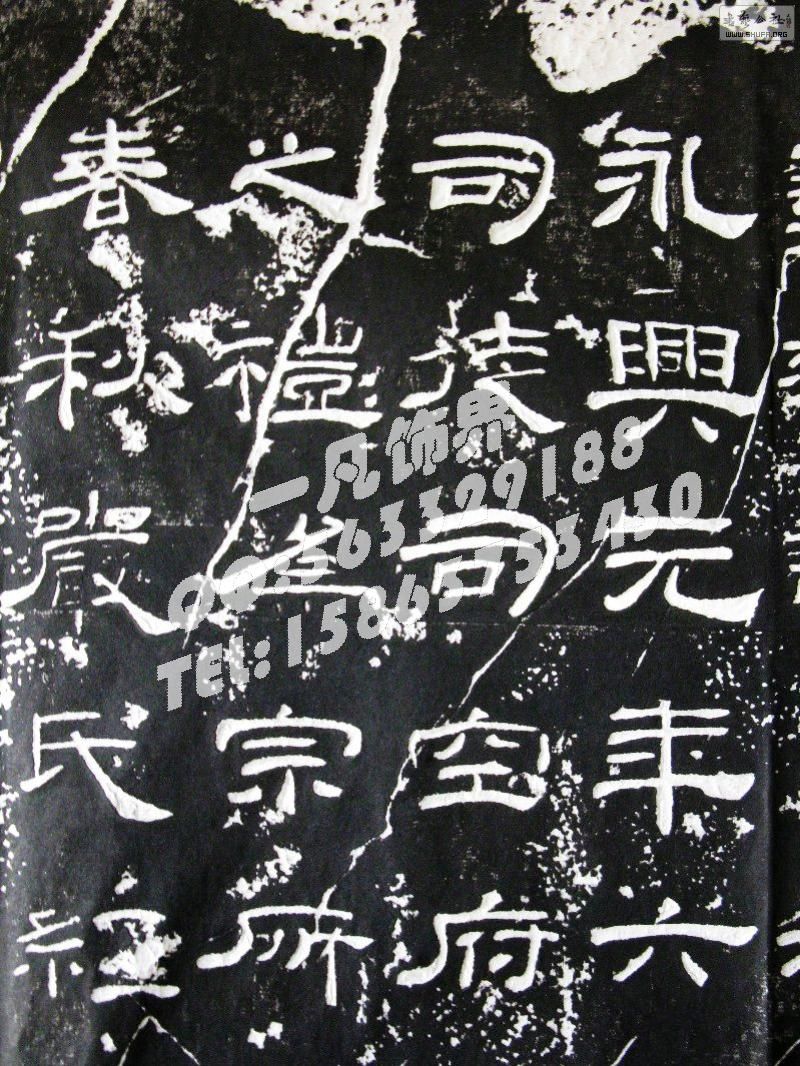 永興元年六
司徒司空府
之禮為宗所
春秋嚴氏經
一凡饰界
QQ:563329188
Tel:
WWW.SHUFA.ORG